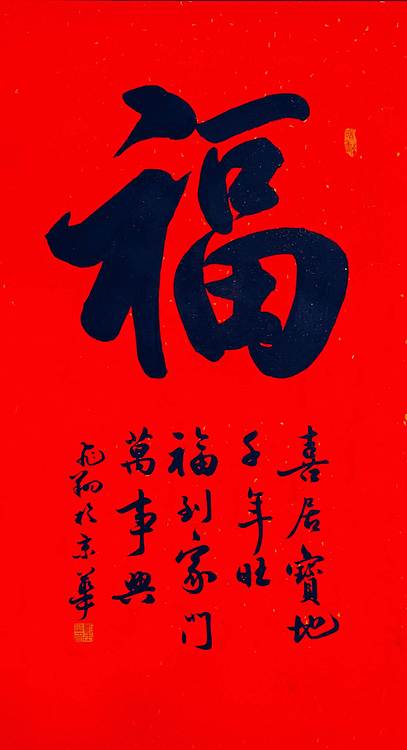 福
喜居寶地
千年旺
福到家門
萬事興
飛翔於京華